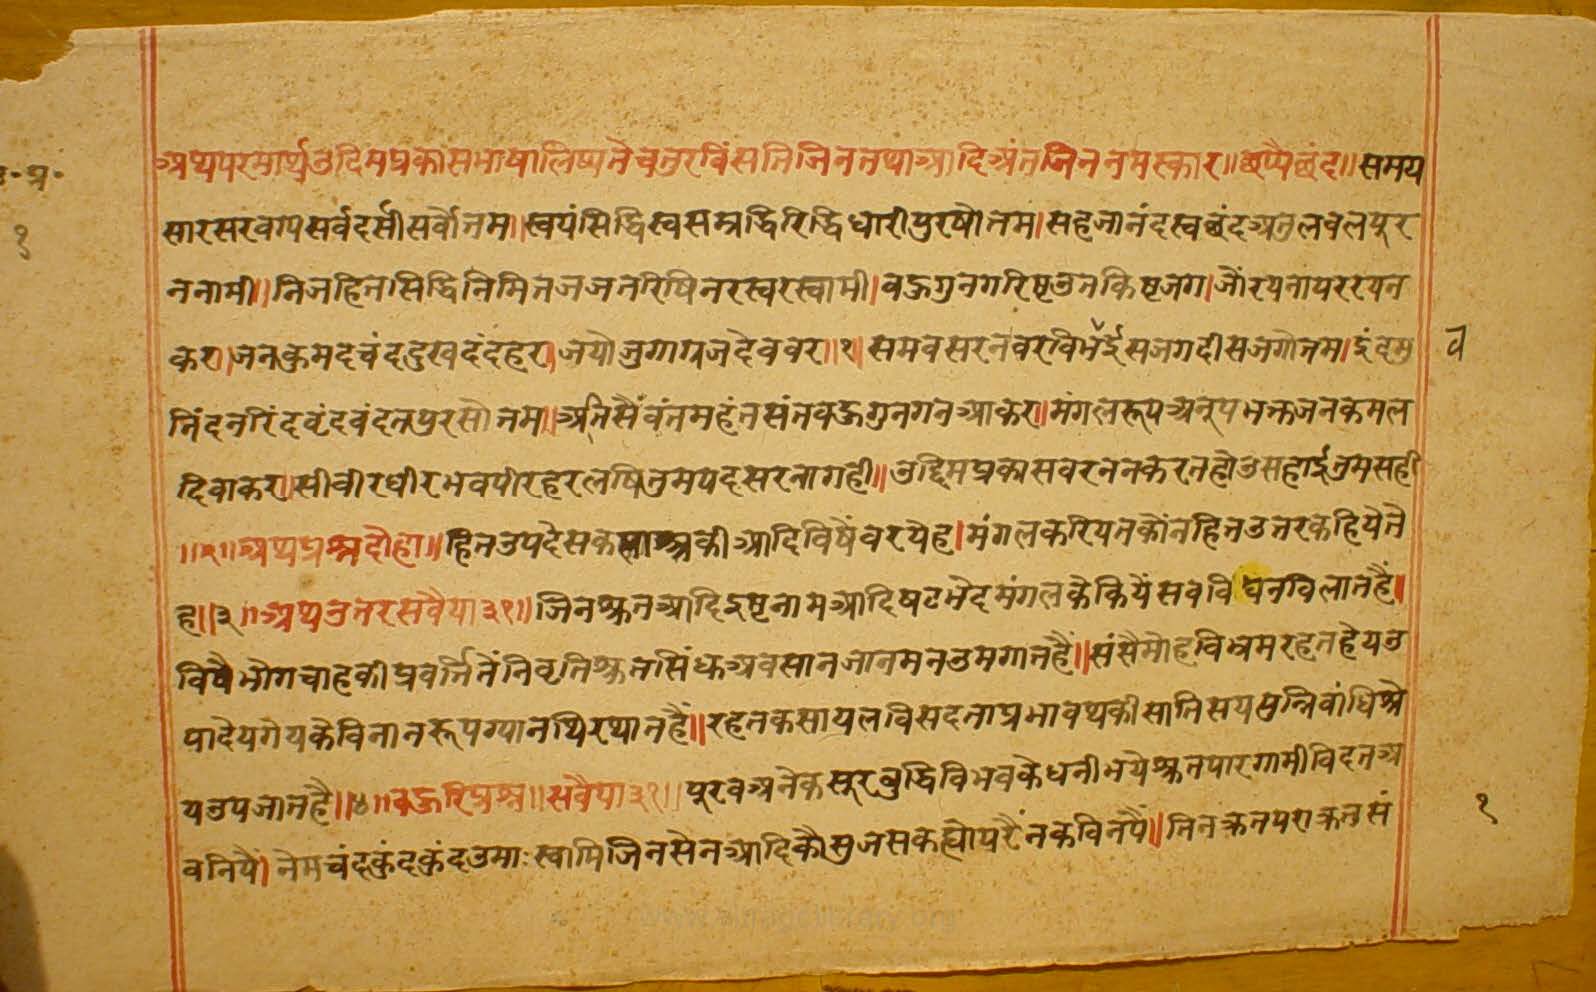 उ॰प्र॰
१
अथपरमार्थउदिमप्रकासभाषालिष्यतेचतुरविंसतिजिनतथाआदिअंतजिननमस्कार॥छप्पैछंद॥समय
सारसरवग्यसर्वदर्सीसर्वोत्तम॥स्वयंसिद्धिस्वसमृद्धिरिद्धिधारीपुरषोतम।सहजानंदस्वछंदअतुलवलपूर
ननामी॥निजहितसिद्धिनिमितजजतरिषिनरस्वरस्वामी।वऊगुनगरिष्टउतकिष्टजग।जौंरयनायररयन
कर॥जनकुमदचंददुखदंदहर।जयोजुगगजदेववर॥१॥समवसरनवरविभईसजगदीसजगोतम।इंदमु
व
निंदनरिंदवृंदवंदतपुरसोतम॥अतिसैवंतमहंतसंतवऊगुनगनआकर॥मंगलरूपअनूपभक्तजनकमल
दिवाकर॥सीवीरधीरभवपीरहरलषितुमपदसरनागही॥उद्दिमप्रकासवरननकरतहोउसहाईतुमसही
॥२॥अथप्रश्नदोहा॥हितउपदेसकसाश्त्रकीआदिविषैंवरयेह।मंगलकरियतकौंनहितउतरकहियेते
ह॥३॥अथउतरसवैया३१॥जिनश्रुतआदिइष्टनामआदिषटभेदमंगलकेकियेंसवविघनविलातहैं॥
विषैभोगचाहकीप्रवर्त्तितेंनिवृतिश्रुतसिंधुअवसानजानमनउमगातहै॥संसैमोहविभ्रमरहतहेयउ
पादेयगेयकेविनानरूपग्यानथिरथातहैं॥रहेनकसायलविसदताप्रभावथकीसातिसयपुन्निवांधिश्रे
यउपजातहै॥४॥वऊरिप्रश्न॥सवैया३१॥पूरवअनेकसूरवुद्धिविभवकेधनीभयेश्रुतपारगामीविदतअ
वनिपैं।नेमचंदकुंदकुंदउमाःस्वामिजिनसैनआदिकौसुजसकह्योपरैंनकविनपैं॥तिनक्रतपराक्रतसं
१